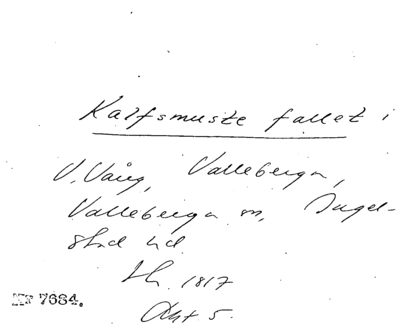 Kalfsmuste fallet i
V. Vång, Valleberga,
Valleberga sn, Ingel-
stad hd
Sk. 1817
Akt 5.
Nr 7684.